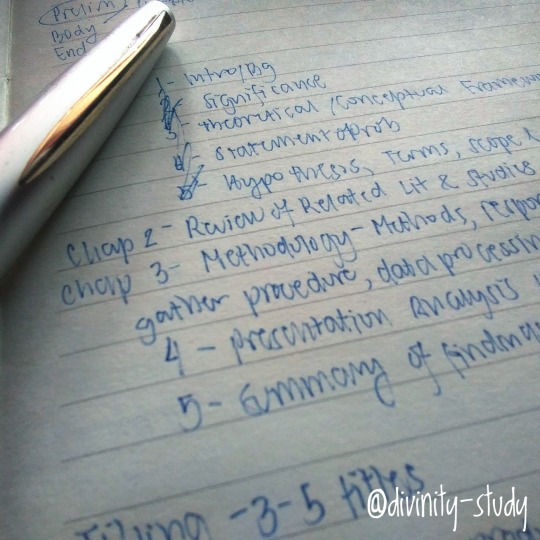 Prelim
Body
End
1- Intro/Bg
significance
theoretical/conceptual Framework
4- statement of prob
5- Hypothesis, Terms, scope &
Chap 2- Review of Related Lit & studies
chap 3- Methodology-Methods, respon
gather procedure, data processin
4 - presentation Analysis
5- summary of findin
-3-5 titles
@divinity-study